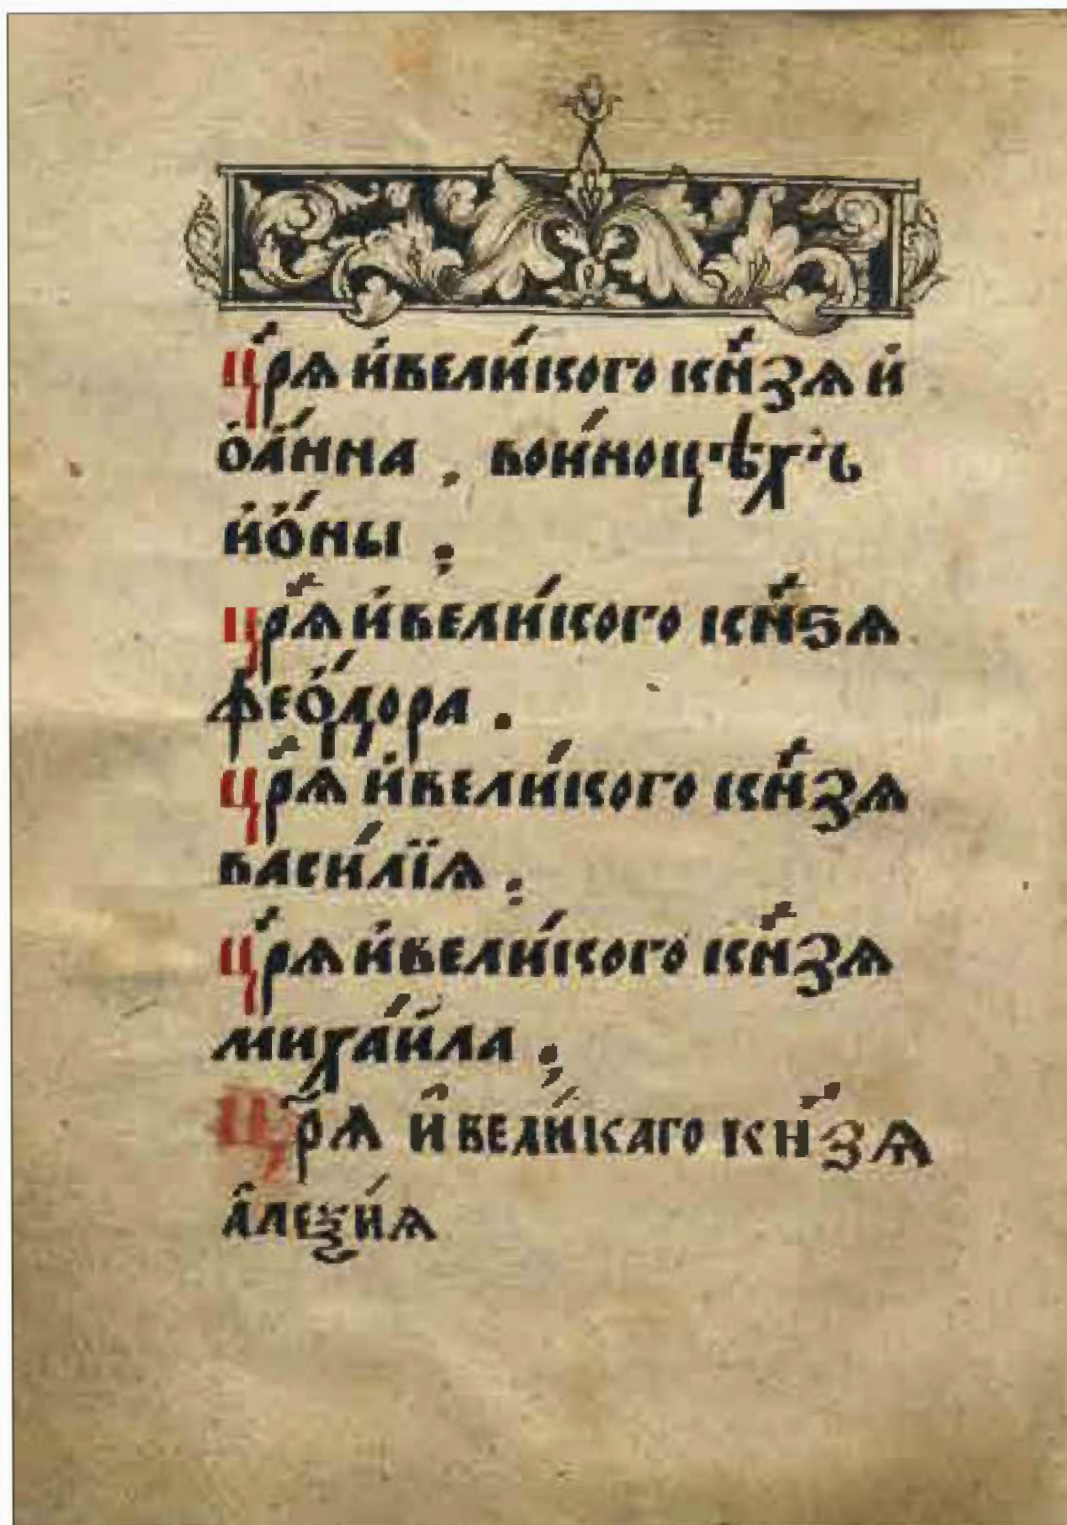 Цр҃ѧ и҆вели́кого кн҃зѧ и҆
ѻ҆а́нна . вои́ноцѣхъ
и҆ѻ҆́ны :
Цр҃ѧ и҆вели́кого кн҃ѕѧ
феѻ́дора .
Цр҃ѧ и҆вели́кого кн҃зѧ
васи́лїѧ :
Цр҃ѧ и҆вели́кого кн҃зѧ
миха́ила :
Цр҃ѧ и҆ вели́каго кн҃зѧ
а҆леѯи́ѧ